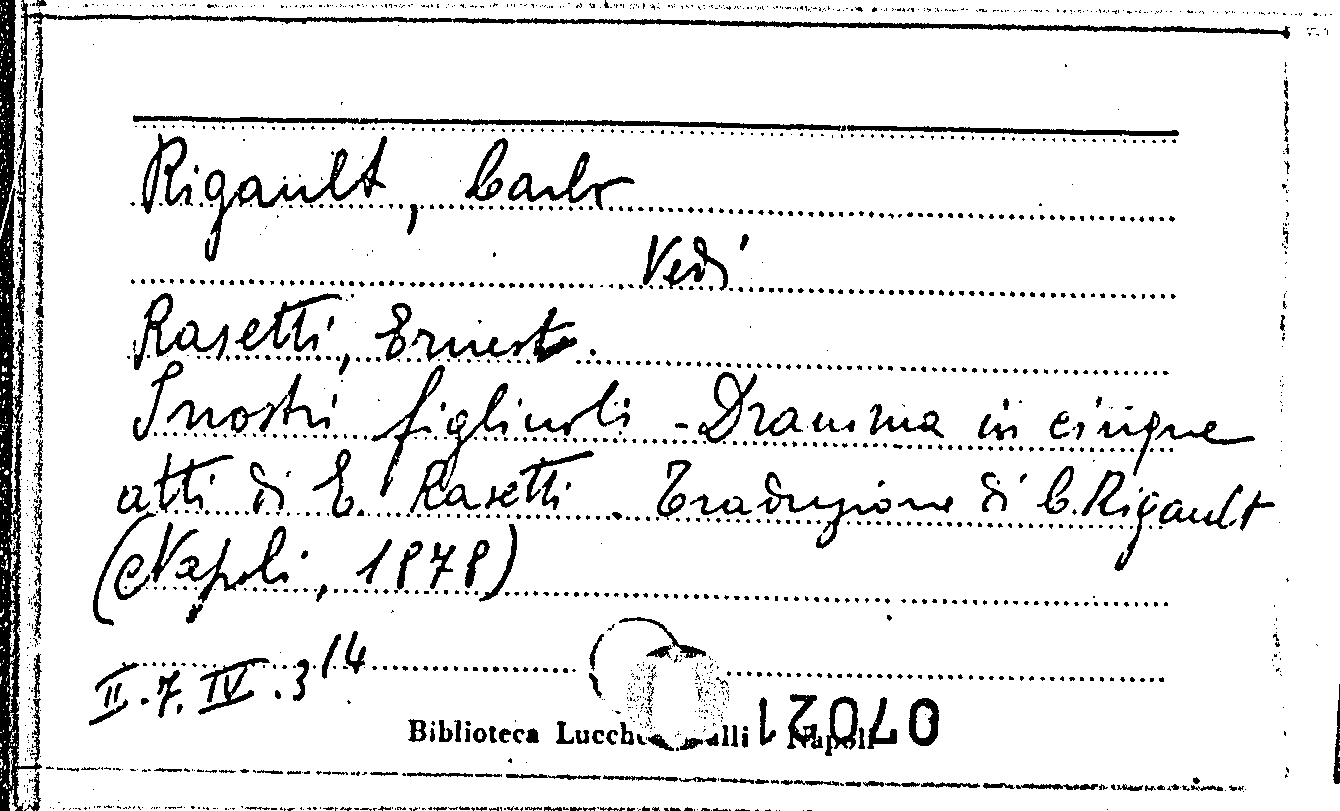 Rigault, Carlo
Vedi
Rasetti, Ernesto.
I nostri figliuoli - Dramma in cinque
atti di E. Rasetti. Traduzione di C. Rigault
(Napoli, 1878)
II.7.IV.3 14
Biblioteca Lucche alli Napoli
07021